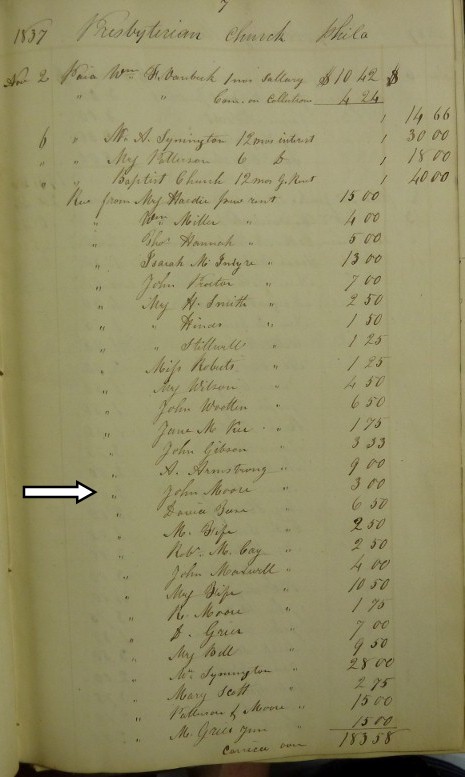 7
1837 Presbyterian Church Phila
Nov 2 Paid Wm F. Vanbeck 1 mos sallary $10 42 $
" " Com. on collections 4 24
14 66
6 " Wm A. Symington 12 mos interest 30 00
" " My Patterson 6 Do 18 00
" " Baptist Church 12 mos G. Rent 40 00
Rec from My Hardie pew rent 15 00
" Wm Miller " 4 00
" Thos Hannah " 5 00
" Isaiah McIntyre " 13 00
" John Proctor " 7 00
" My H. Smith " 2 50
" " Hinds " 1 50
" " Stillwell " 1 25
" Miss Roberts " 1 25
" My Wilson " 4 50
" John Wootten " 6 50
" Jane McKee " 1 75
" John Gibson " 3 33
" A. Armstrong " 9 00
" John Moore " 3 00
" David " 6 50
" M. Fife " 2 50
" Robt McCay " 2 50
" John Maxwell " 4 00
" My Fife " 10 50
" R. Moore " 1 75
" D. Grier " 7 00
" My Bell " 9 50
" Wm Symington " 28 00
" Mary Scott " 2 75
" Patterson & Moore " 15 00
" M. Grier Junr " 15 00
Carried over 183 58